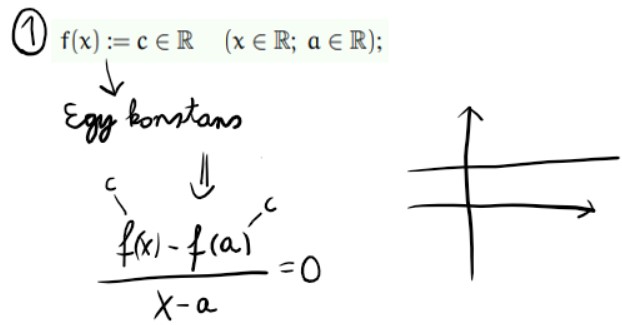 ① f(x) := c ∈ ℝ (x ∈ ℝ; a ∈ ℝ);
Egy konstans
c
c
f(x) - f(a)
= 0
x - a